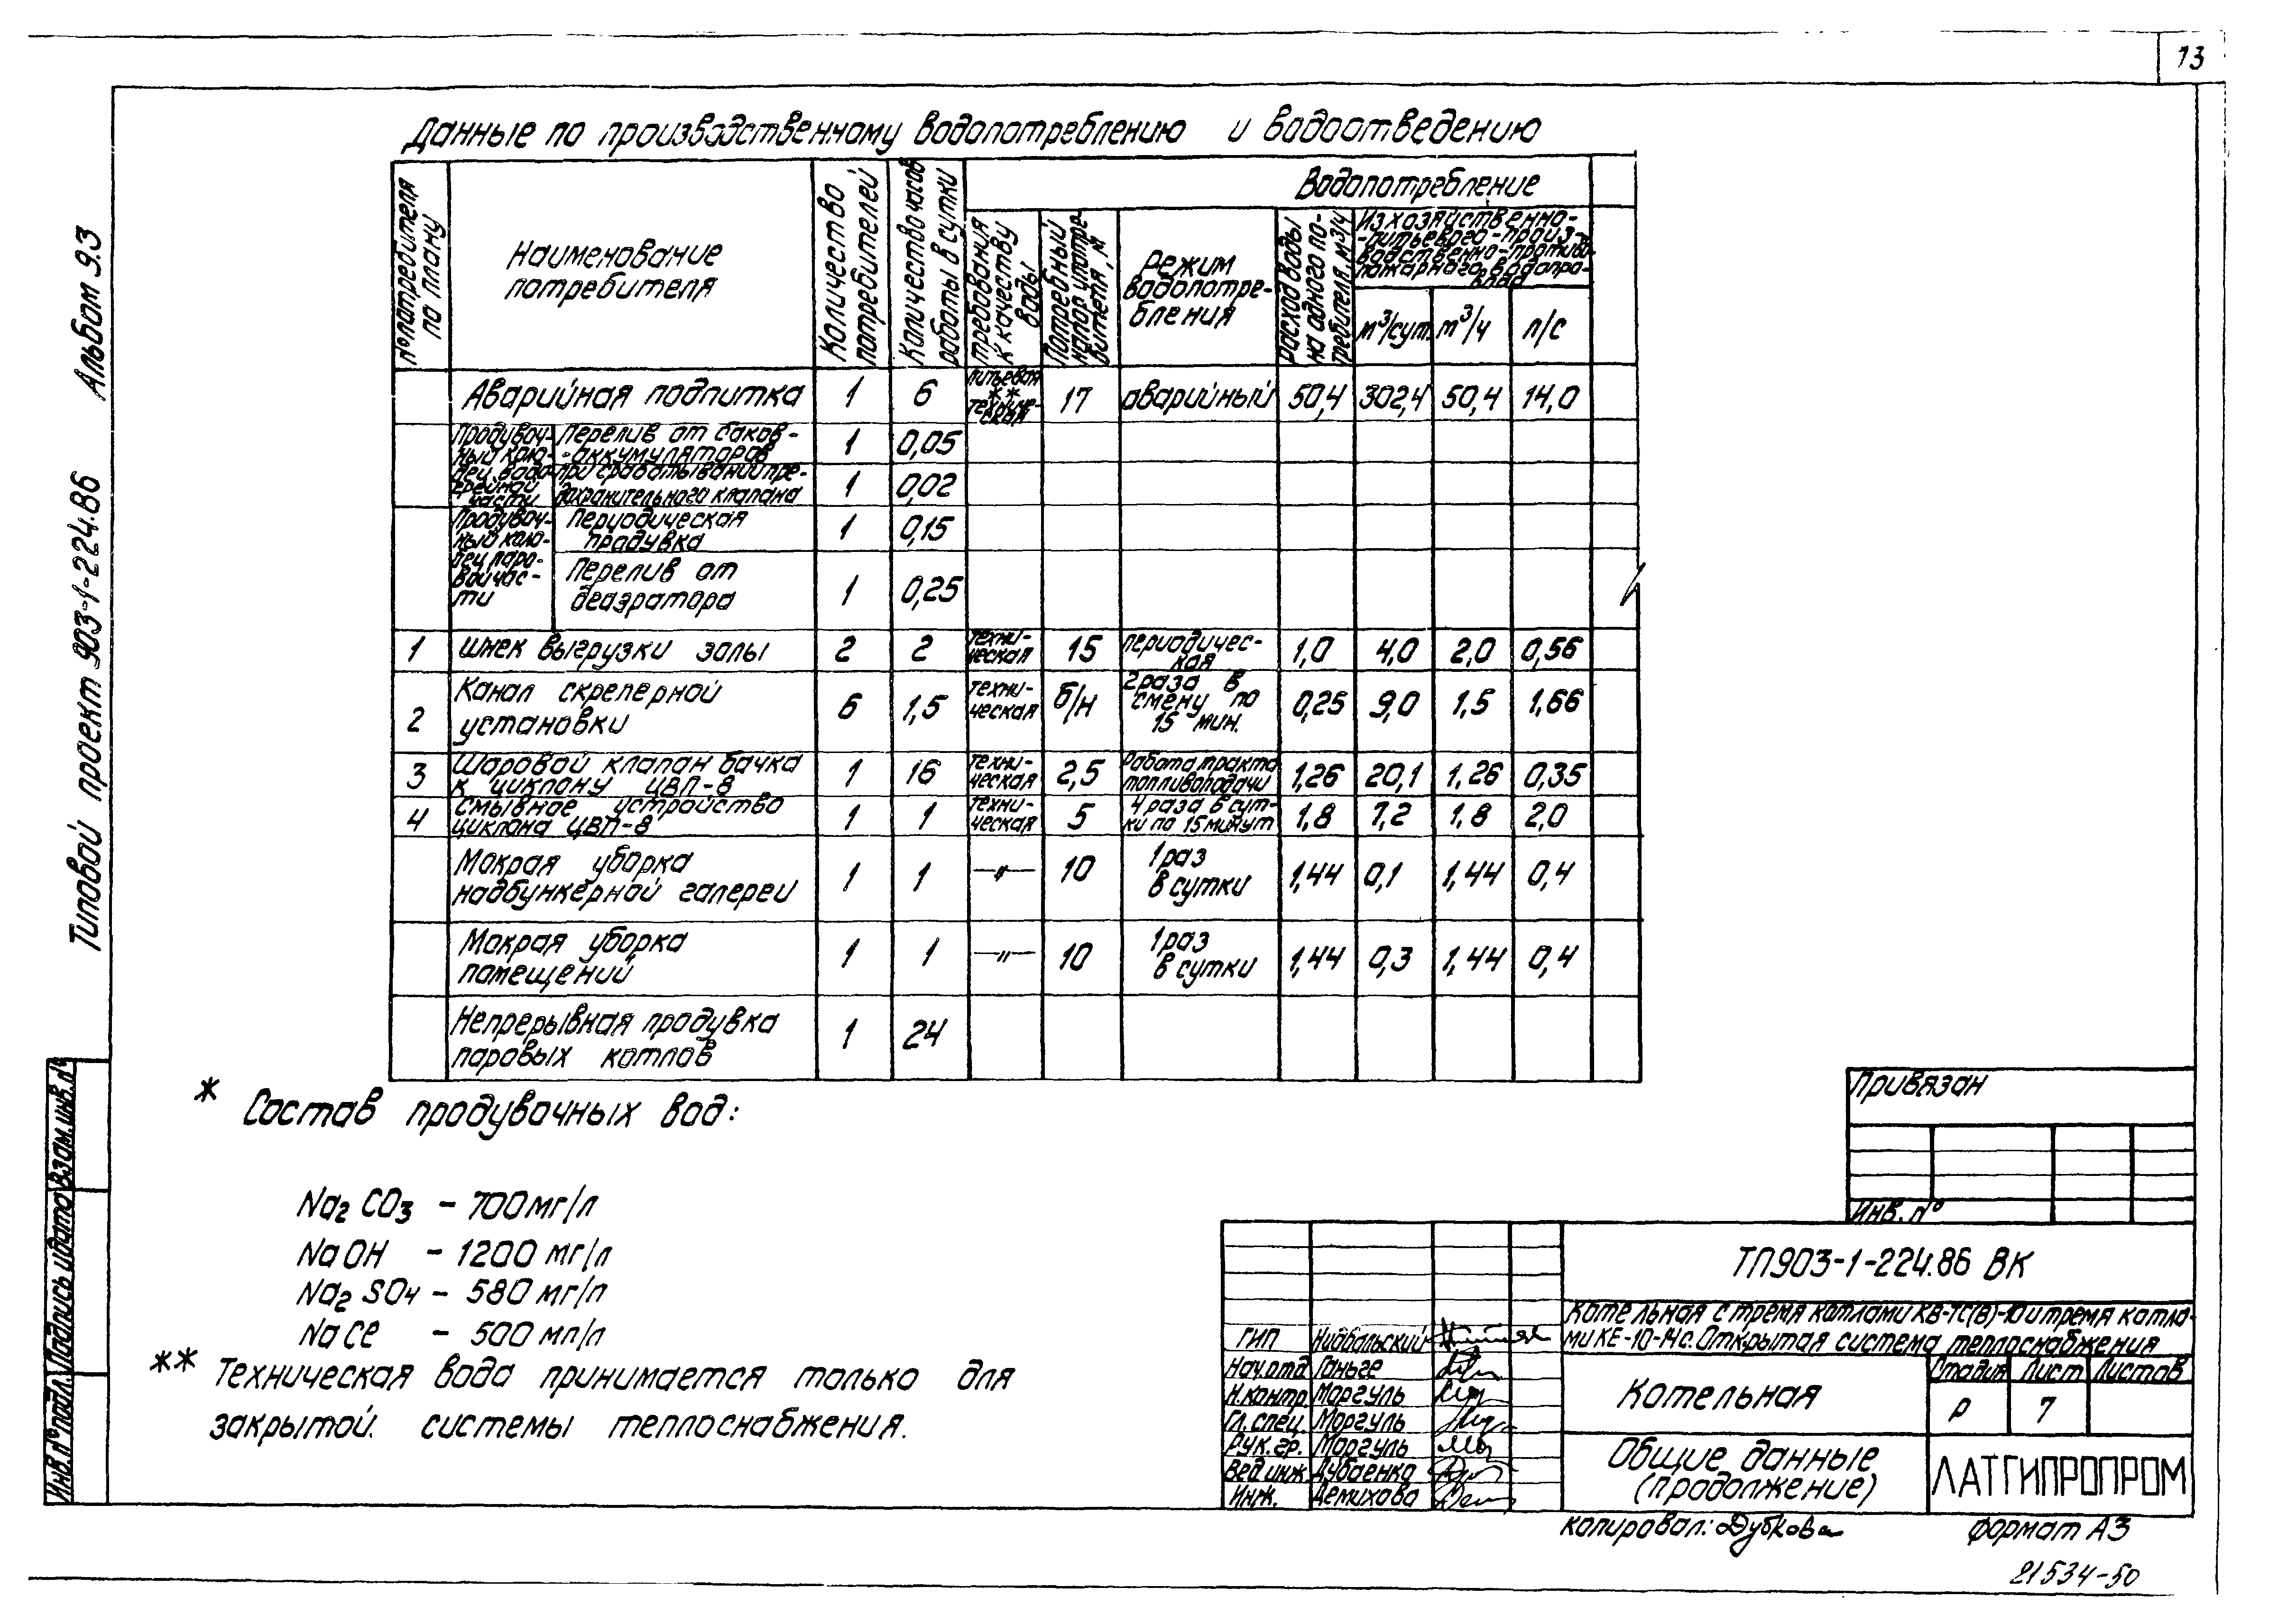 13
Данные по производственному водопотреблению и водоотведению
№ потребителя по плану
Наименование потребителя
Количество потребителей
Количество часов работы в сутки
Водопотребление
Требования к качеству воды
Потребный напор у потребителя, м
Режим водопотре-
бления
Расход воды на одного по-
требителя, м3/ч
Из хозяйственно-
-питьевого-произ-
водственно-противо-
пожарного водопро-
вода
м³/сут. м³/ч л/с
Аварийная подпитка 1 6 питьевая ** техниче-
ская 17 аварийный 50,4 302,4 50,4 14,0
Продувоч-
ный коло-
дец водо-
грейной
части
Перелив от баков-
-аккумуляторов 1 0,05
При срабатывании пре-
дохранительного клапана 1 0,02
Продувоч-
ный коло-
дец паро-
вой час-
ти
Периодическая
продувка 1 0,15
Перелив от
деаэратора 1 0,25
1 Шнек выгрузки золы 2 2 техни-
ческая 15 периодичес-
кая 1,0 4,0 2,0 0,56
2 Канал скреперной
установки 6 1,5 техни-
ческая б/н 2 раза в
смену по
15 мин. 0,25 9,0 1,5 1,66
3 Шаровой клапан бачка
к циклону ЦВП-8 1 16 техни-
ческая 2,5 Работа тракта
топливоподачи 1,26 20,1 1,26 0,35
4 Смывное устройство
циклона ЦВП-8 1 1 техни-
ческая 5 4 раза в сут-
ки по 15 минут 1,8 7,2 1,8 2,0
Мокрая уборка
надбункерной галереи 1 1 —"— 10 1 раз
в сутки 1,44 0,1 1,44 0,4
Мокрая уборка
помещений 1 1 —"— 10 1 раз
в сутки 1,44 0,3 1,44 0,4
Непрерывная продувка
паровых котлов 1 24
* Состав продувочных вод:
Na2 CO3 – 700 мг/л
NaOH – 1200 мг/л
Na2 SO4 – 580 мг/л
NaCl – 500 мл/л
** Техническая вода принимается только для
закрытой. системы теплоснабжения.
Типовой проект 903-1-224.86 Альбом 9.3
Взам.инв.№
Подпись и дата
Инв.№ подл.
Привязан
Инв. №
ТП903-1-224.86 ВК
Котельная с тремя котлами КВ-ТС(В)-10 и тремя котла-
ми КЕ-10-14с. Открытая система теплоснабжения
ГИП Нидбальский
Нач.отд. Ганьге
Н.контр. Моргуль
Гл.спец. Моргуль
Рук.гр. Моргуль
Вед.инж. Дубаенко
Инж. Демихова
Котельная
Стадия Лист Листов
Р 7
Общие данные
(продолжение)
ЛАТГИПРОПРОМ
копировал: Дубкова
формат А3
21534-50